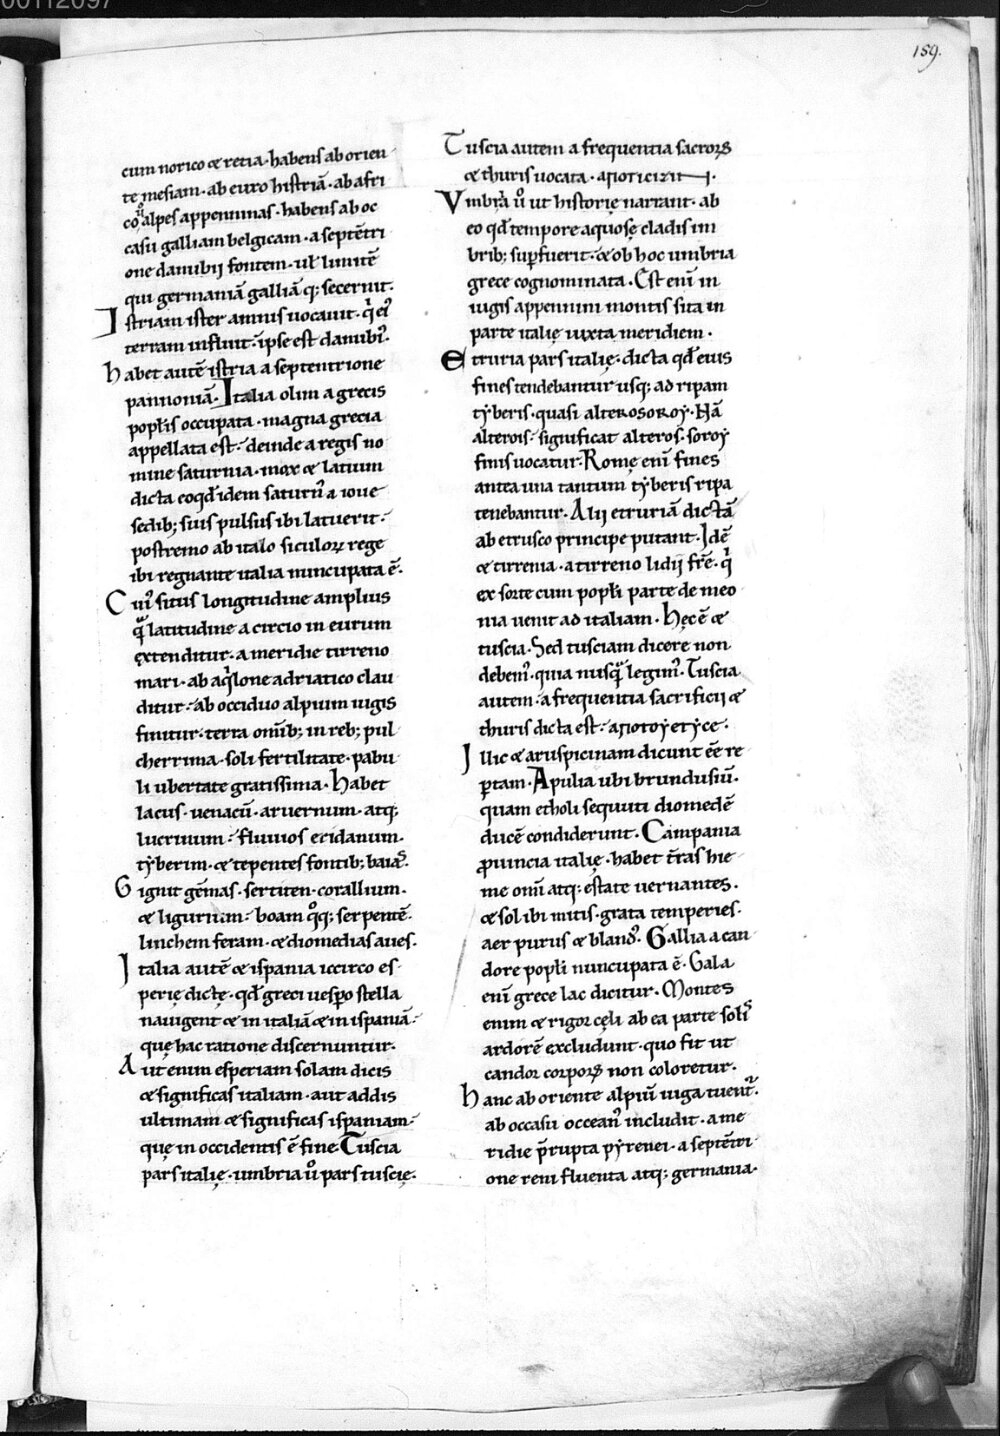 00112097
159.
cum norico & retia · habens ab orien
te mesiam · ab euro histriā · ab afri
co ů alpes appenninas · habens ab oc
casu galliam belgicam · a septētri
one danubij fontem · uł limitē
qui germaniā galliā q; secernit.
Istriam ister amnis uocauit · q̇ eiꝰ
terram influit · ipse est danubiꝰ.
habet autē istria a septentrione
pannoniā. Italia olim a grecis
popłis occupata · magna grecia
appellata est · deinde a regis no
mine saturnia · mox & latium
dicta eo qđ idem saturnꝰ a ioue
sedib; suis pulsus ibi latuerit ·
postremo ab italo siculoꝝ rege
ibi regnante italia nuncupata ē.
Cuiꝰ situs longitudine amplius
quā latitudine a circio in eurum
extenditur · a meridie tirreno
mari · ab aq̇lone adriatico clau
ditur · ab occiduo alpium iugis
finitur · terra omīb; in reb; pul
cherrima · soli fertilitate · pabu
li ubertate gratissima · Habet
lacus · uenacū · aruernum · atq;
lucrinum · fluuios eridanum ·
tẏberim · & tepentes fontib; baias.
Gignit gēmas · sertiten · corallium ·
& ligurium · boam q̊q; serpentē ·
linchem feram · & diomedias aues.
Italia autē & ispania iccirco es
perię dictę · qđ greci uespo stella
nauigent & in italiā & in ispaniā ·
quę hac ratione discernuntur.
Aut enim esperiam solam dicis
& significas italiam · aut addis
ultimam & significas ispaniam ·
quę in occidentis ē fine Tuscia
pars italię · umbria ů pars tuscię ·
Tuscia autem a frequentia sacroꝝ
& thuris uocata ·
Vmbria ů ut historię narrant · ab
eo qđ tempore aquosę cladis im
brib; sup̄fuerit · & ob hoc umbria
grece cognominata · Est enī in
iugis appennini montis sita in
parte italię iuxta meridiem ·
Etruria pars italię · dicta qđ eius
fines tendebantur usq; ad ripam
tẏberis · quasi alterosoroẏ · Nā
alterois · significat alteros · soroẏ
finis uocatur · Romę enī fines
antea una tantum tẏberis ripa
tenebantur · Alij etruriā dictā
ab etrusco principe putant · Idē
& tirrenia · a tirreno lidij frē · q̇
ex sorte cum popłi parte de meo
nia uenit ad italiam · hęc ē &
tuscia · Sed tusciam dicere non
debemꝰ · quia nusquā legimꝰ · Tuscia
autem · a frequentia sacrificij &
thuris dicta est ·
Illic & aruspicinam dicunt ēe re
ꝑtam · Apulia ubi brundusiū ·
quam etholi sequuti diomedē
ducē condiderunt · Campania
ꝓuincia italię · habet t̄ras hie
me omī atq; estate uernantes ·
& sol ibi mitis · grata temperies ·
aer purus & blandꝰ · Gallia a can
dore popłi nuncupata ē · Gala
enī grece lac dicitur · Montes
enim & rigor cęli ab ea parte solis
ardorē excludunt · quo fit ut
candor corporꝭ non coloretur ·
hanc ab oriente alpiū iuga tuentꝰ.
ab occasu occeanꝰ includit · a me
ridie p̄rupta pẏrenei · a septētri
one reni fluenta atq; germania ·